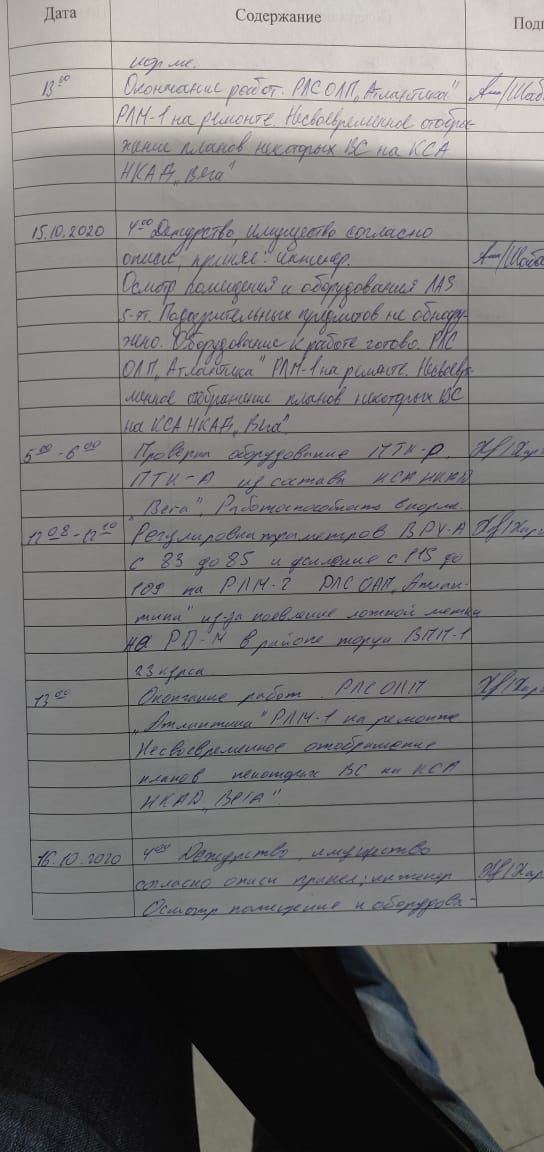 Дата Содержание Подп
норме.
13 00 Окончание работ. РЛС ОЛП „Атлантика"
РЛМ-1 на ремонте. Несвоевременное отобра-
жение планов некоторых ВС на КСА
НКАД „Вега"
15.10.2020 4 00 Дежурство, имущество согласно
описи, принял: инженер.
Осмотр помещения и оборудования
5-эт. Подозрительных предметов не обнару-
жено. Оборудование к работе готово. РЛС
ОЛП „Атлантика" РЛМ-1 на ремонте. Несвоевре-
менное отображение планов некоторых ВС
на КСА НКАД „Вега".
5 00 - 6 00 Проверка оборудование ПТК-Р,
ПТК-А из состава КСА НКАД
"Вега". Работоспособность в норме.
12 08 - 12 10 Регулировка параметров ВРУ-А
с 83 до 85 и усиление с 113 до
109 на РЛМ-2 РЛС ОЛП „Атлан-
тика" из-за появление ложной метки
на РД-М в районе торца ВПП-1
23 курса.
13 00 Окончание работ. РЛС ОЛП
„Атлантика" РЛМ-1 на ремонте
Несвоевременное отображение
планов некоторых ВС на КСА
НКАД „Вега".
16.10.2020 4 00 Дежурство, имущество
согласно описи принял: инженер
Осмотр помещение и оборудова-